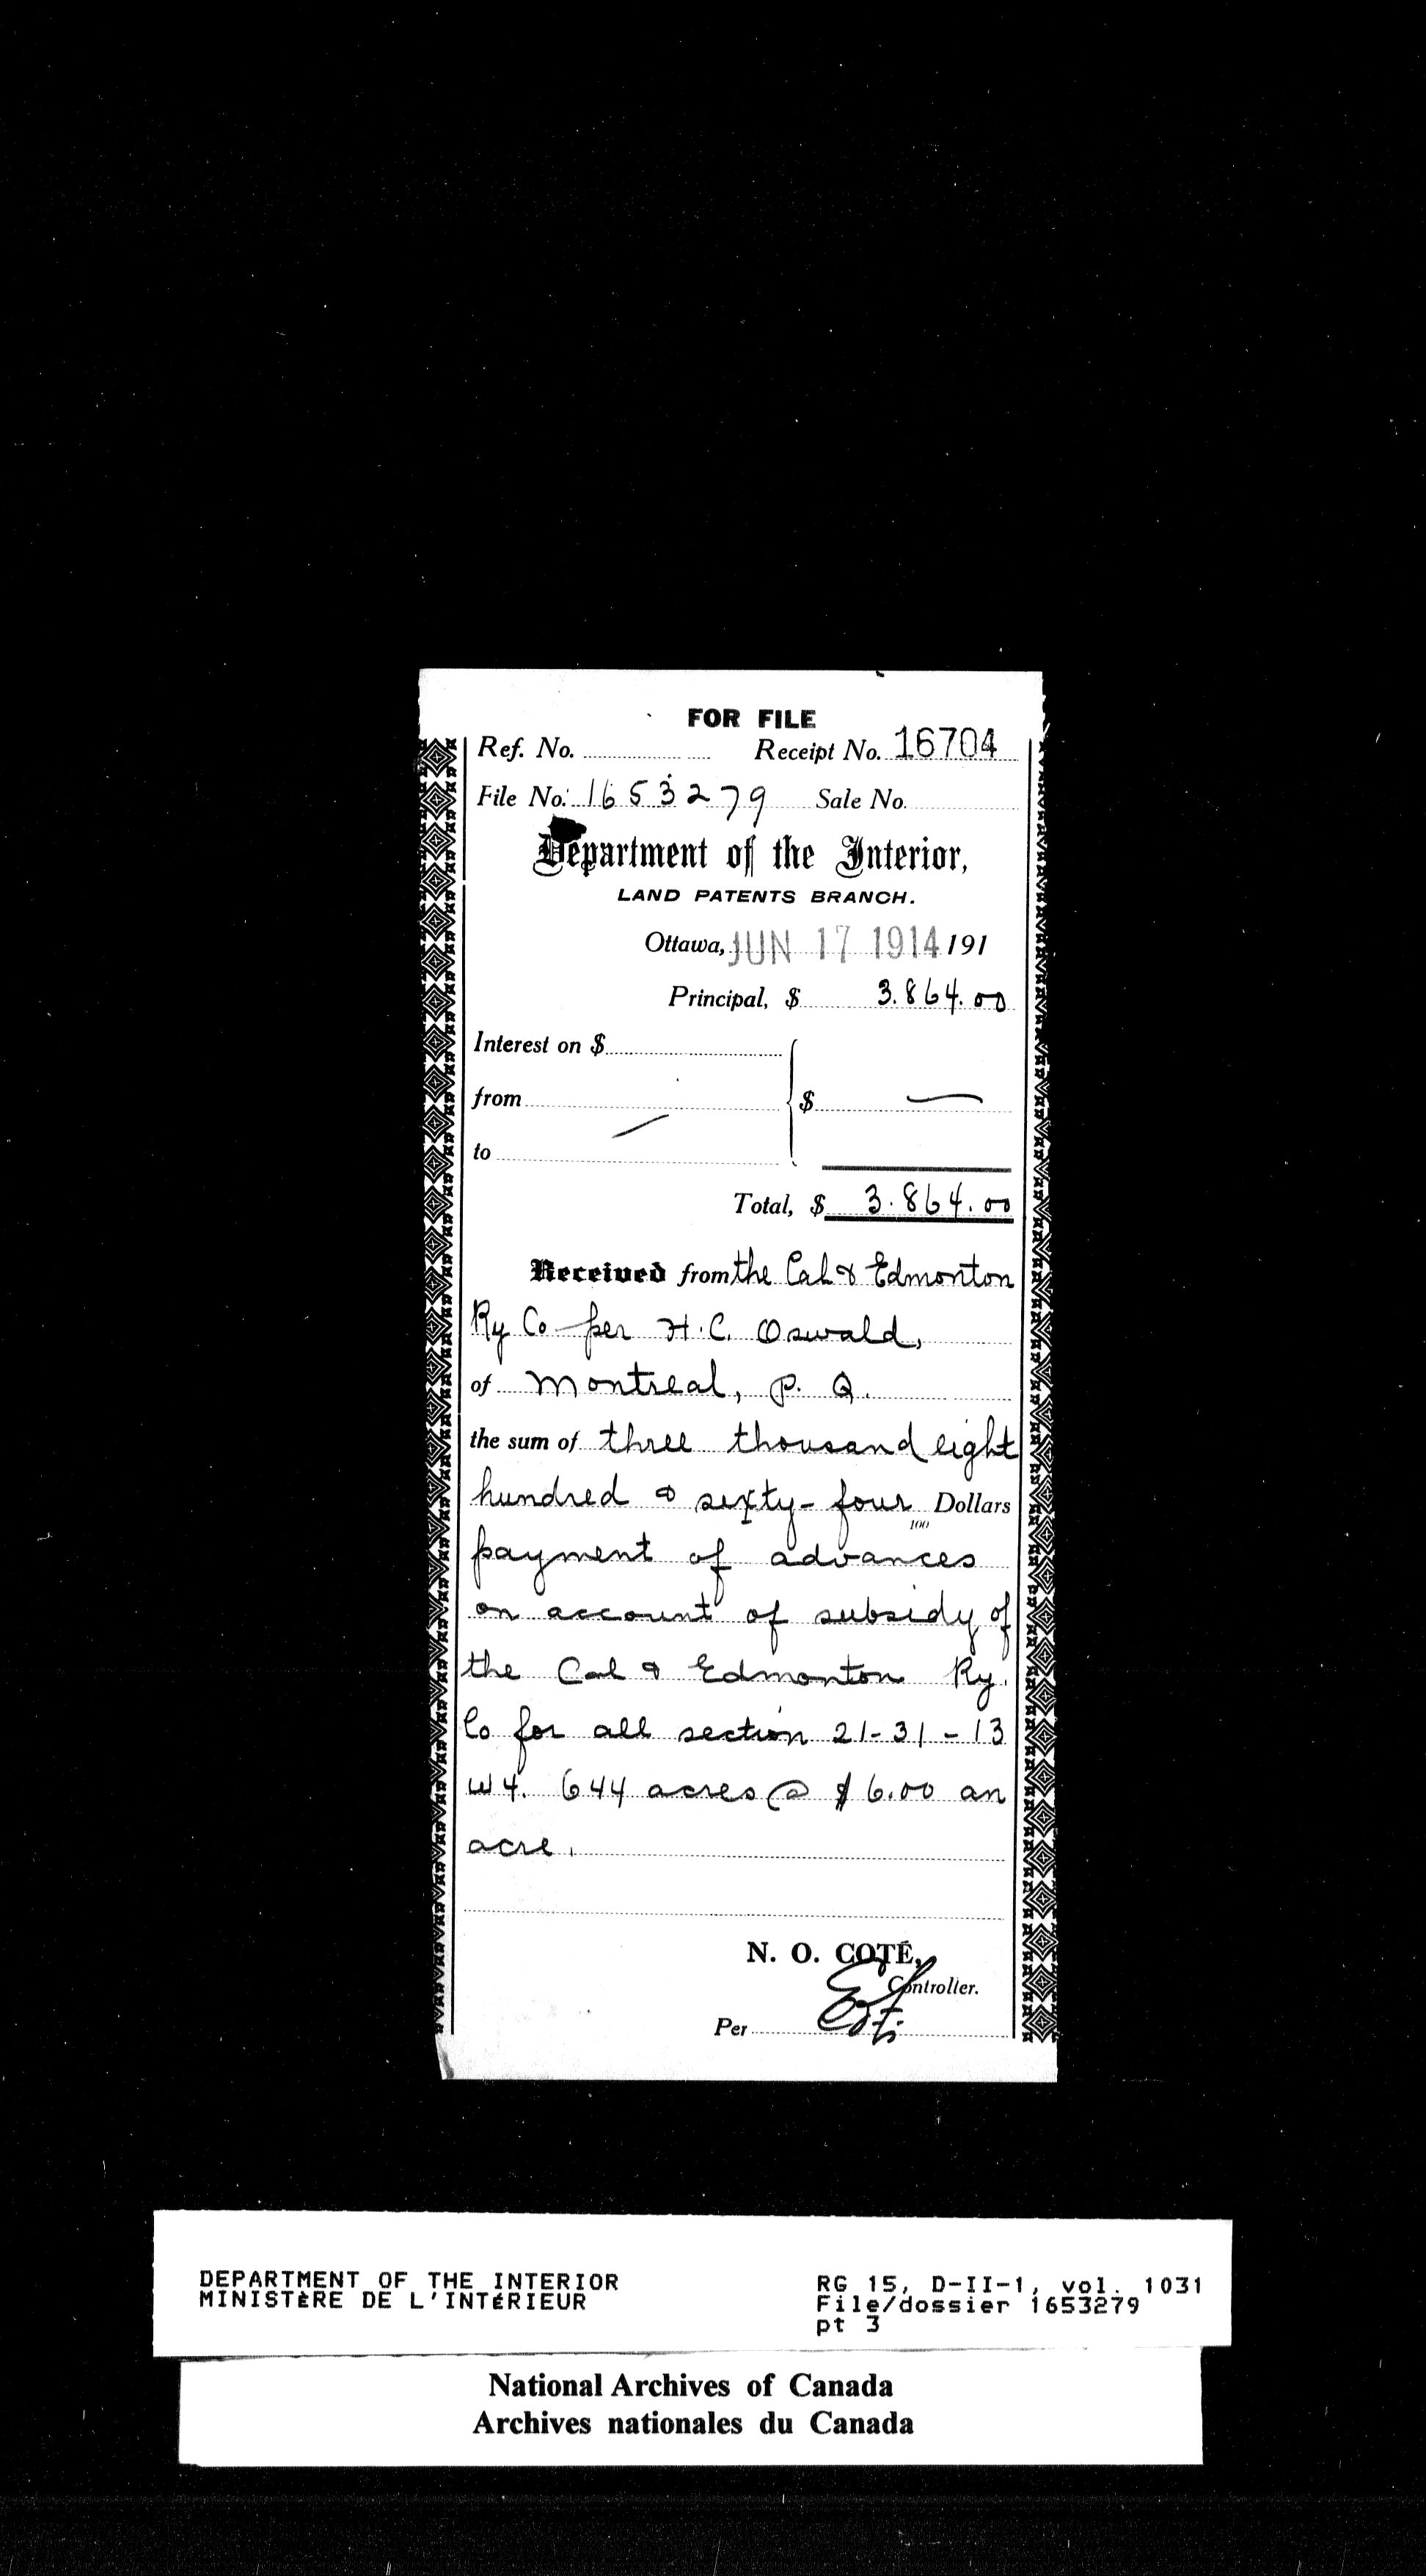 FOR FILE
Ref. No. Receipt No. 16704
File No. 1653279 Sale No.
Department of the Interior,
LAND PATENTS BRANCH.
Ottawa, JUN 17 1914 191
Principal, $ 3.864.00
Interest on $
from $ —
to
Total, $ 3.864.00
Received from the Cal & Edmonton
Ry Co per H. C. Oswald,
of Montreal, P. Q.
the sum of three thousand eight
hundred & sixty-four Dollars
100
payment of advances
on account of subsidy of
the Cal & Edmonton Ry.
Co for all section 21-31-13
W4. 644 acres @ $6.00 an
acre.
N. O. COTÉ,
Controller.
Per
DEPARTMENT OF THE INTERIOR
MINISTÈRE DE L'INTÉRIEUR
RG 15, D-II-1, vol. 1031
File/dossier 1653279
pt 3
National Archives of Canada
Archives nationales du Canada